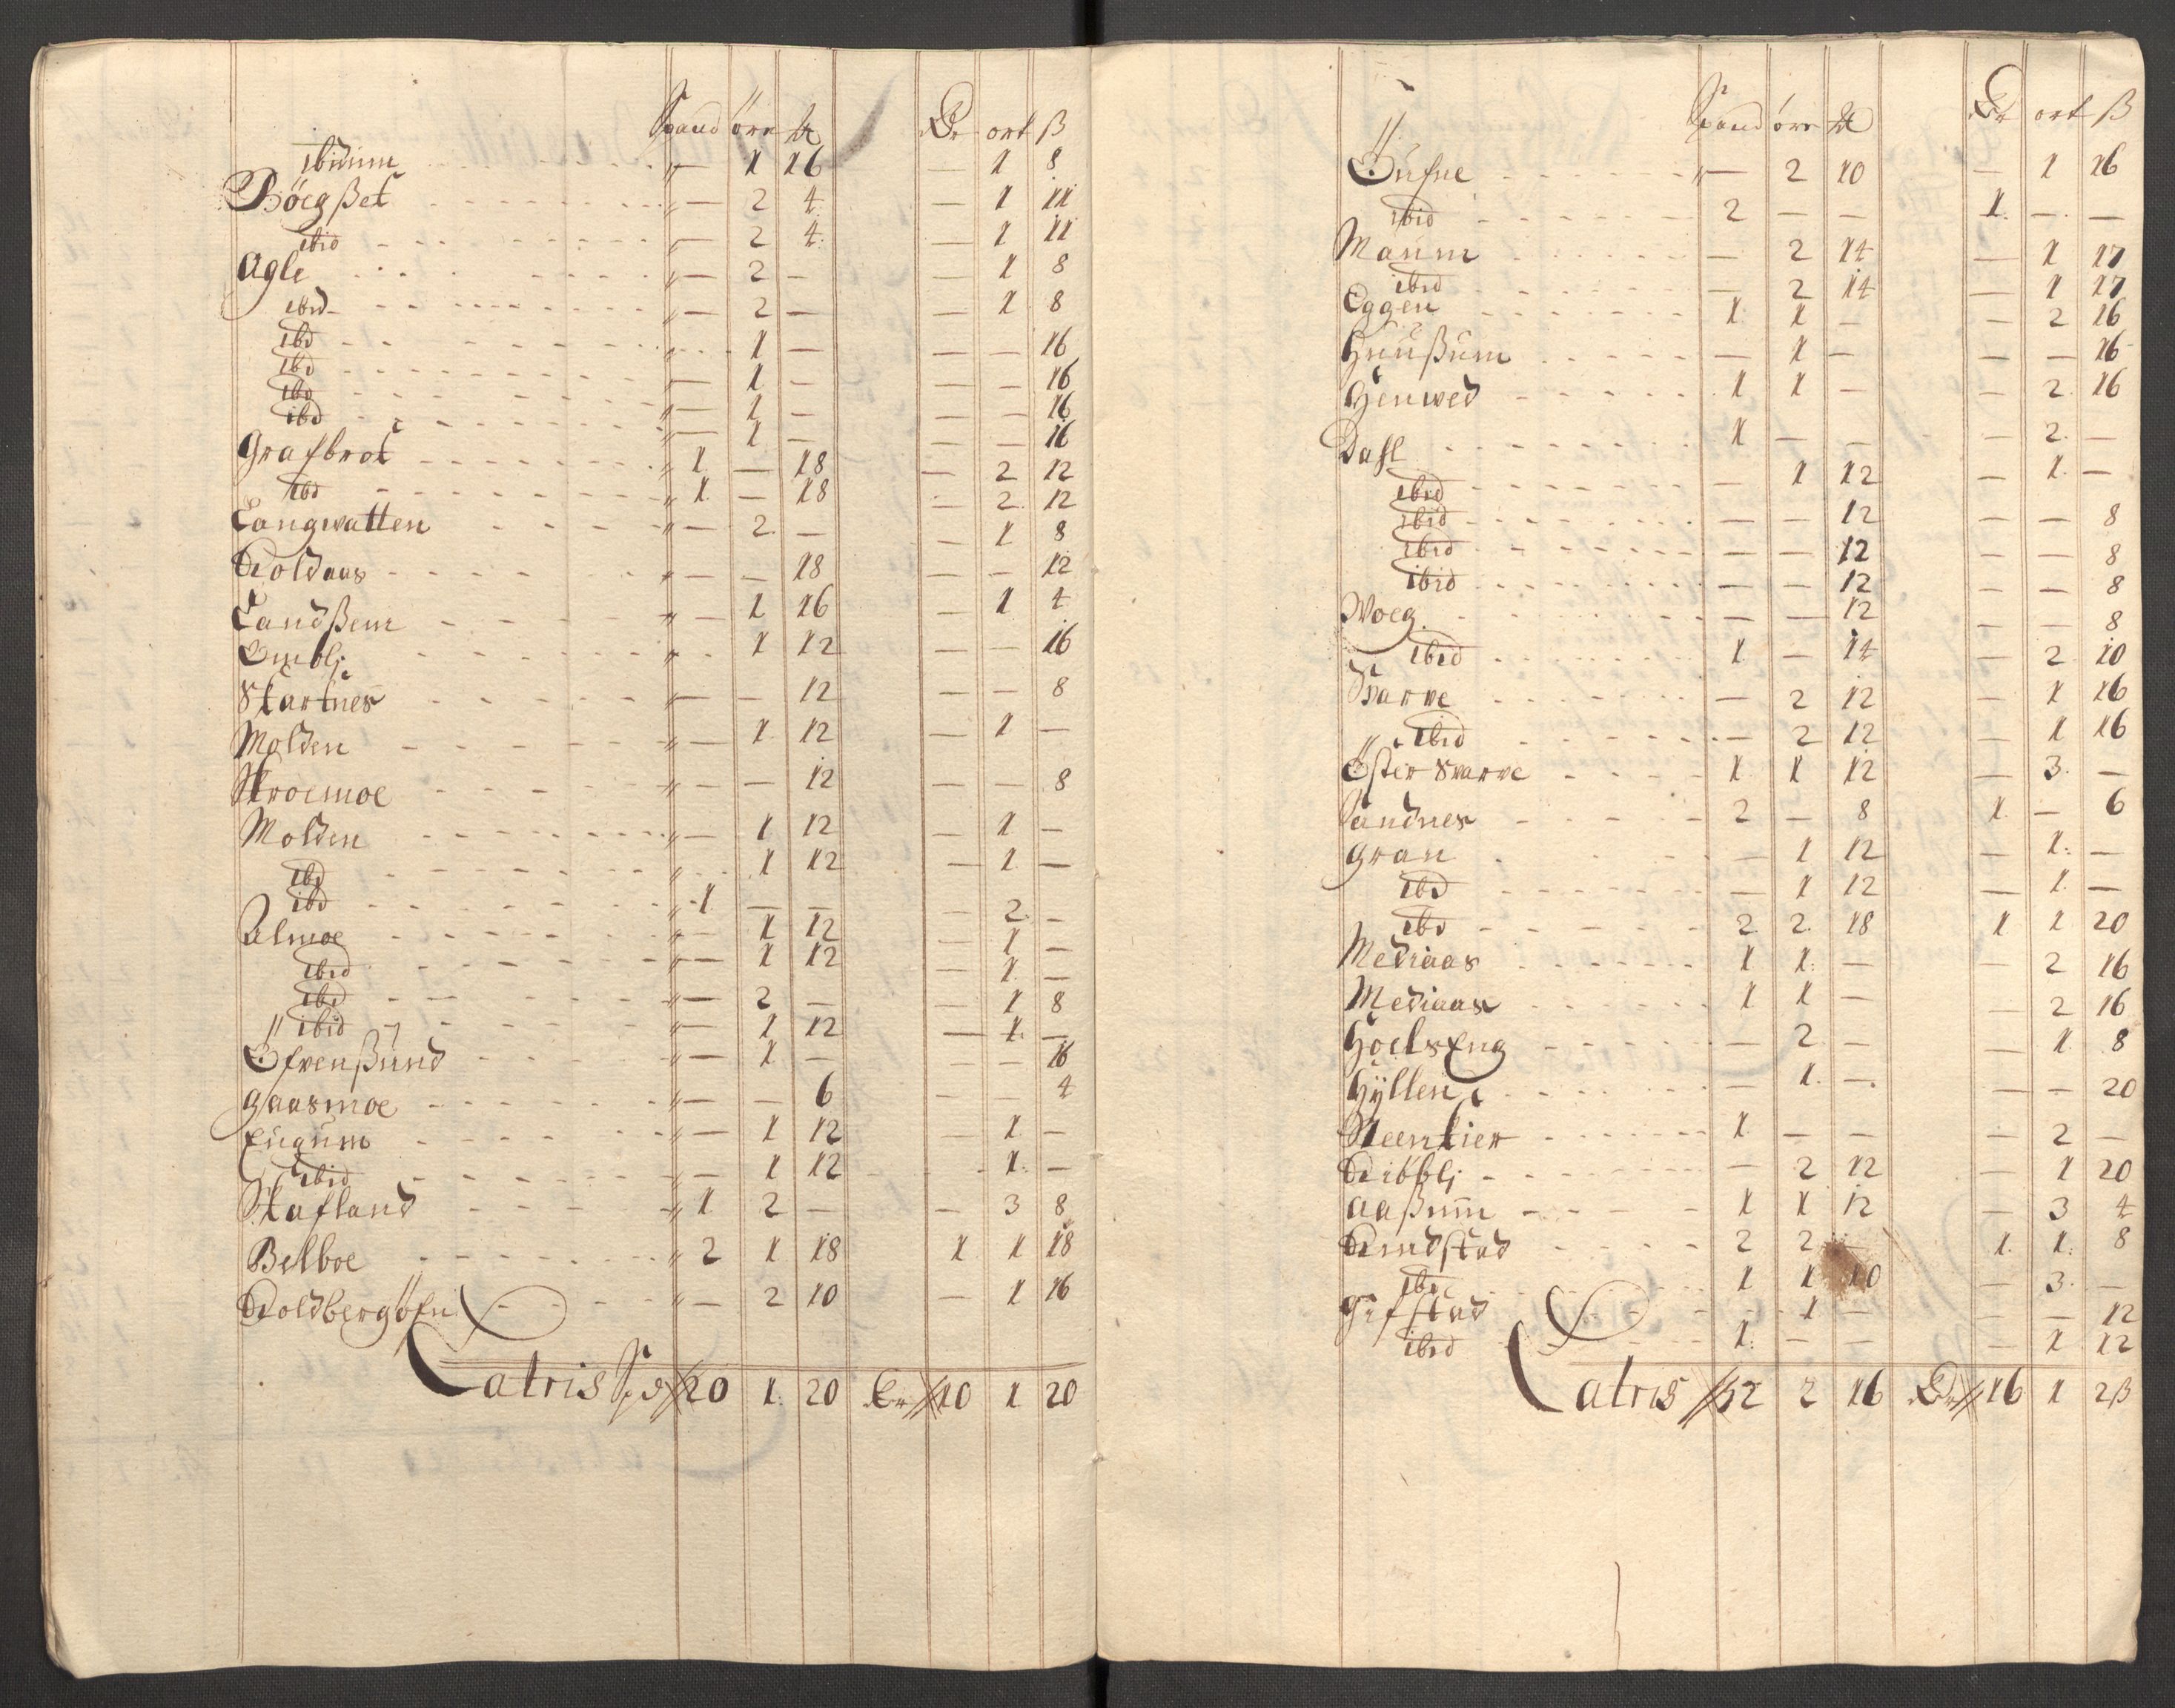 Spand öre ₻ Dr ort ß
ibidim — 1 16 — 1 8
Böegßet — 2 4 — 1 11
ibid — 2 4 — 1 11
Agle — 2 — — 1 8
ibid — 2 — — 1 8
ibd 1 — — — 16
ibd — 1 — — — 16
ibd — 1 — — — 16
ibd — 1 — — — 16
Grafbrot 1 — 18 — 2 12
ibd 1 — 18 — 2 12
Langwatten — 2 — — 1 8
Roldaas — — 18 — — 12
Landßem — 1 16 — 1 4
Ombli 1 12 — — 16
Startnes — — 12 — — 8
Molden — 1 12 — 1 —
Stroemoe — — 12 — — 8
Molden — 1 12 — 1 —
ibd 1 12 — 1 —
ibd 1 — — — 2 —
Almoe — 1 12 — 1 —
ibid — 1 12 — 1 —
ibd — 2 — — 1 8
ibid — 1 12 — 1 —
Öfrenßund — 1 — — — 16
Gaasmoe — — 6 — — 4
Fugum — 1 12 — 1 —
ibid — 1 12 1 —
Stafland 1 2 — — 3 8
Belboe 2 1 18 1 1 18
Roldbergöfn — 2 10 — 1 16
Latris Spd 20 1 20 Dr 10 1 20
Spand öre ₻ Dr ort ß
Öufne — 2 10 — 1 16
ibid 2 — — 1 — —
Maum — 2 14 — 1 17
ibid — 2 14 — 1 17
Eggen 1 1 — — 2 16
Huußum — 1 — — — 16
Henwed 1 1 — — 2 16
Dahl 1 — — — 2 —
ibid — 1 12 — 1 —
ibid — — 12 — — 8
ibid — — 12 — — 8
ibid — — 12 — — 8
Woeg — — 12 — — 8
ibid 1 — 14 — 2 10
Svarve — 2 12 — 1 16
ibid — 2 12 — 1 16
Öster Svarve 1 1 12 — 3 —
Sandnes 2 — 8 1 — 6
Gran — 1 12 — 1 —
ibd — 1 12 — 1 —
ibd 2 2 18 1 1 20
Mediaas 1 1 — — 2 16
Mediaas 1 1 — — 2 16
Hoelseng — 2 — — 1 8
Hÿllen — 1 — — — 20
Steenkier 1 — — — 2 —
Ribblj — 2 12 — 1 20
Aaßum̅ 1 1 12 — 3 4
Rindstad 2 2 — 1 1 8
ibd 1 1 10 — 3 —
Gifstad 1 — — — 12
ibid 1 — — — 1 12
Latris 32 2 16 Dr 16 1 2ß